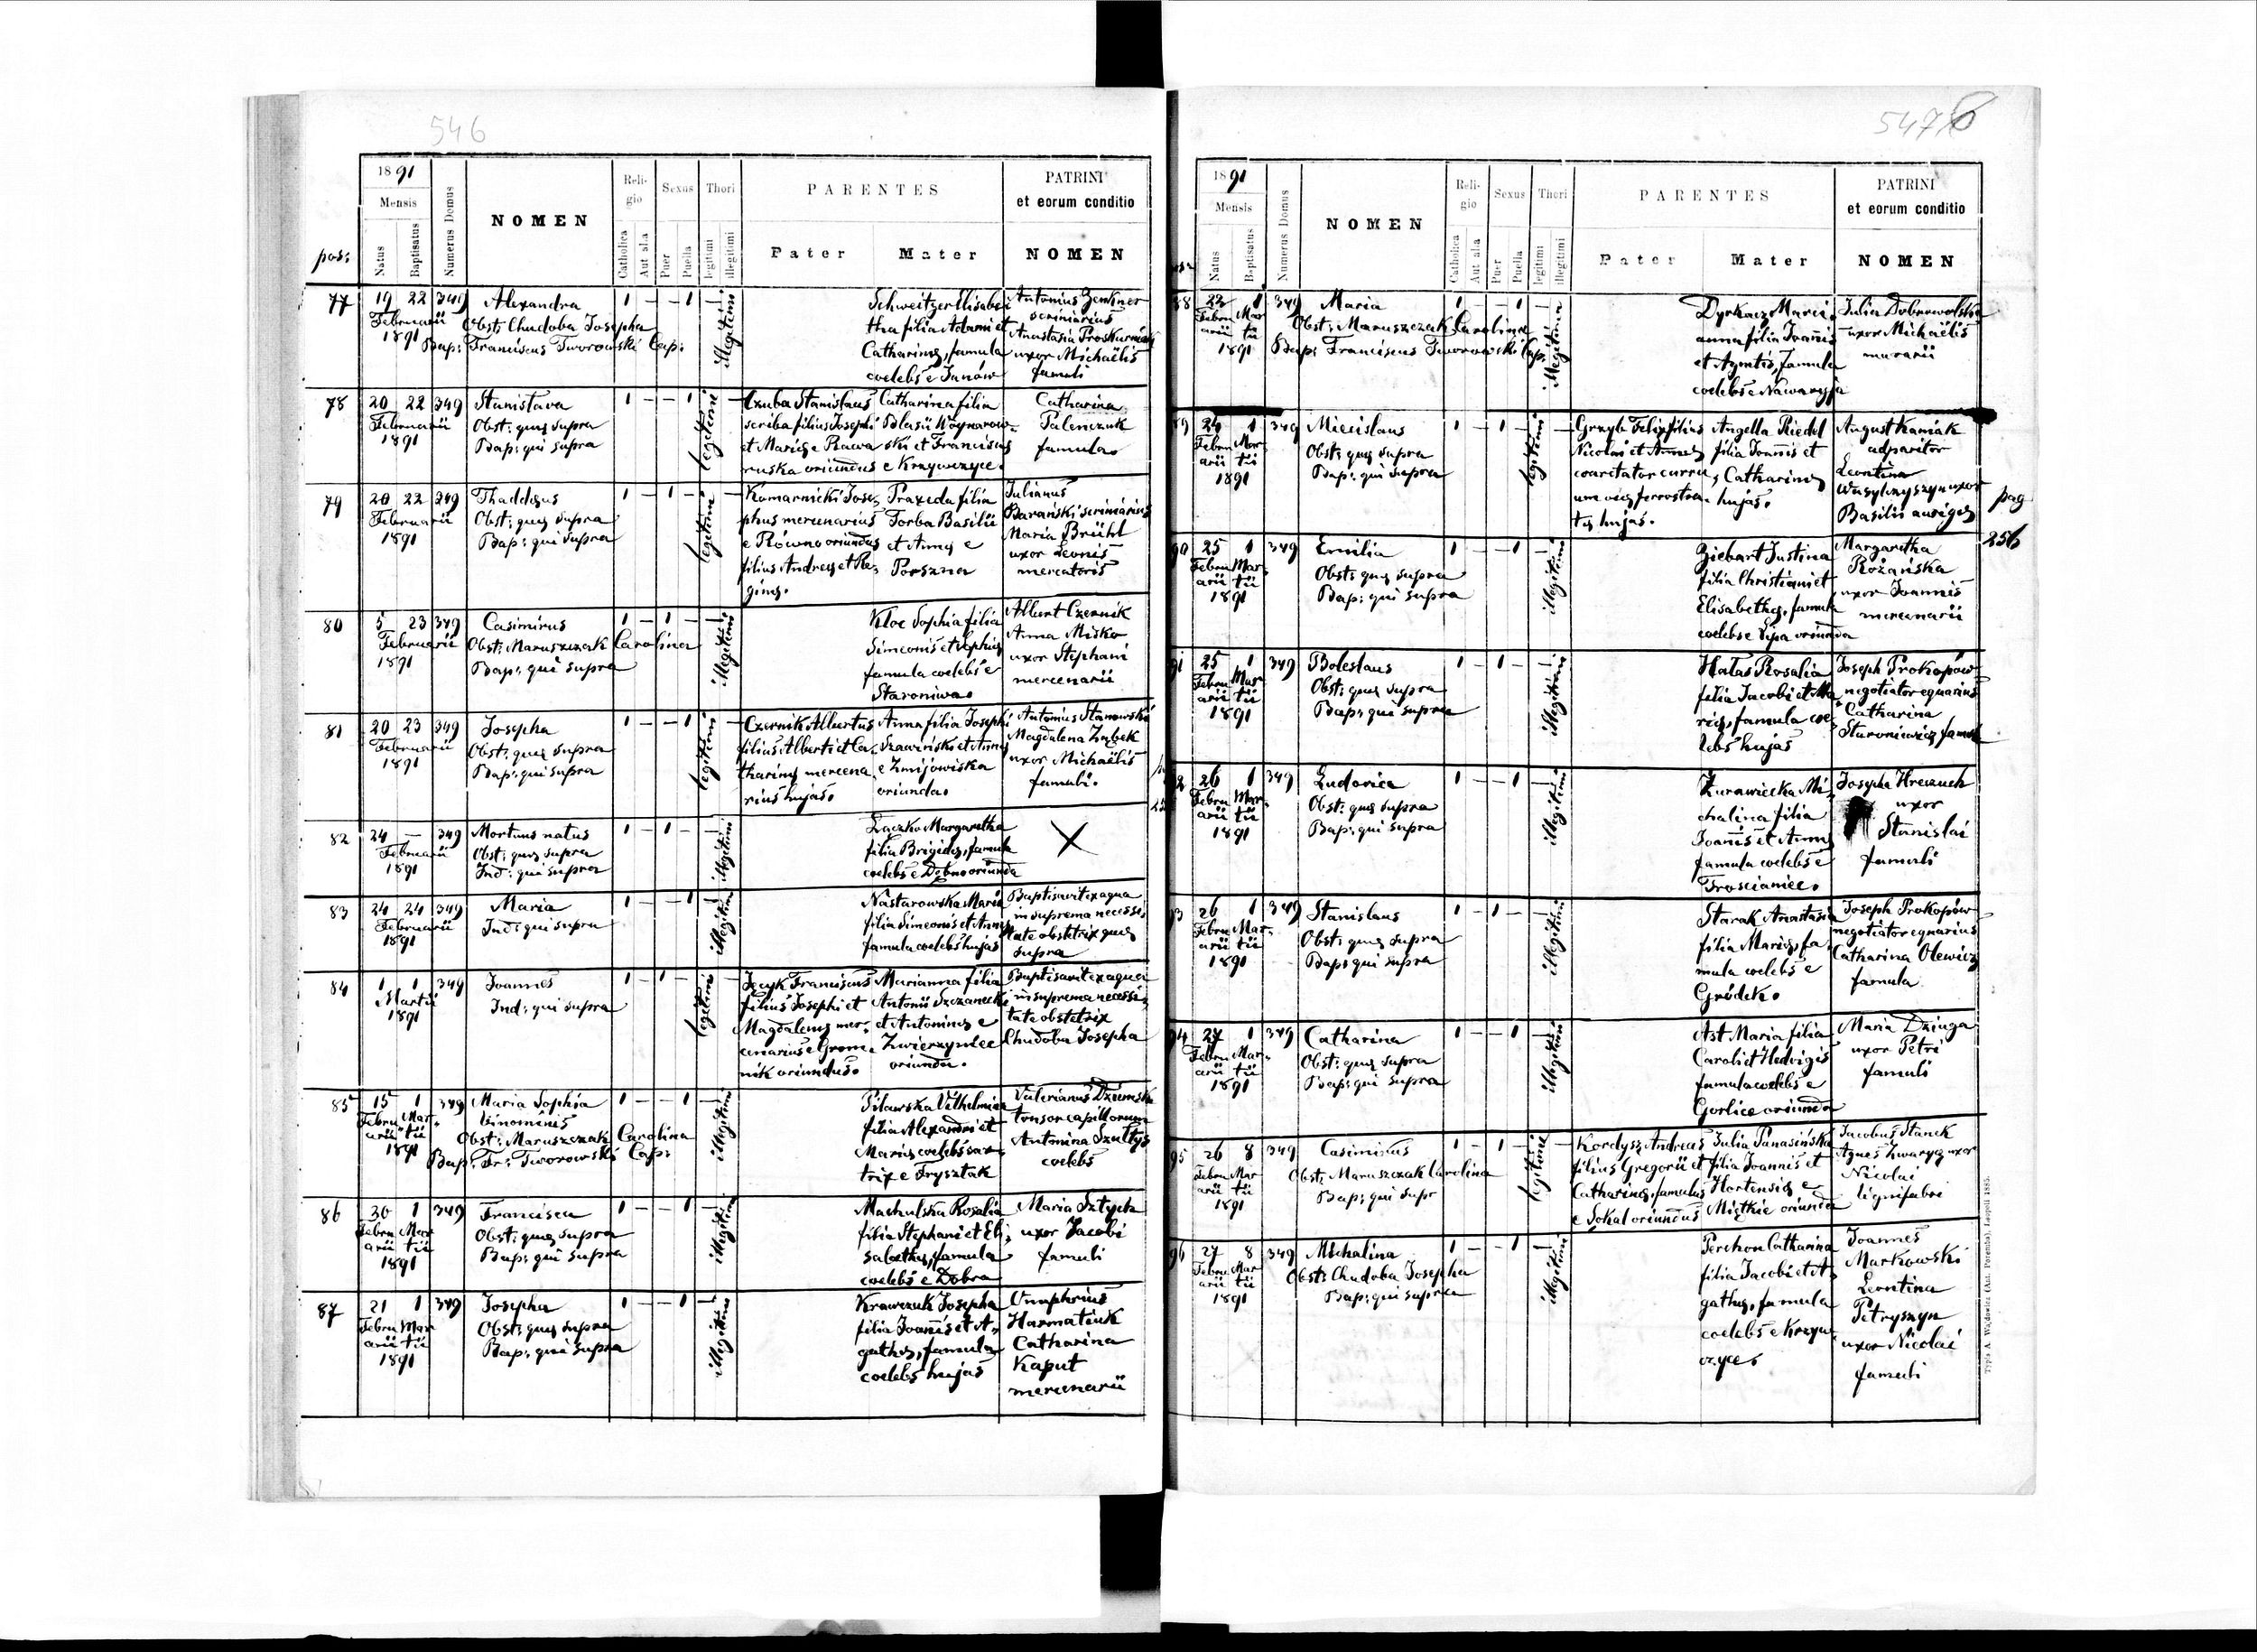 546
1891
Mensis
Natus
Baptisatus
Numerus Domus
NOMEN
Religio
Catholica
Aut alia
Sexus
Puer
Puella
Thori
legitimi
illegitimi
PARENTES
Pater
Mater
PATRINI
et eorum conditio
NOMEN
pos:
77
19 22 349
Februarii
1891
Alexandra
Obst: Chudoba Josepha
Bap: Franciscus Tworowski Cap:
1 — — 1 —
illegitimi
Schweitzer Elisabe
tha filia Adami et
Catharinę, famula
coelebs e Janów
Antonius Zenkner
scriniarius
Anastasia
uxor Michaëlis
famuli
78
20 22 349
Februarii
1891
Stanislava
Obst: quę supra
Bap: qui supra
1 — — 1 —
legitimi
Czuba Stanislaus
scriba filius Josephi
et Marię e Rawa
ruska oriundus
Catharina filia
Blasii Woynarow-
ski et Franciscę
e Krzywczyce.
Catharina
Palenczuk
famula
79
20 22 349
Februarii
1891
Thaddęus
Obst: quę supra
Bap: qui supra
1 — 1 — —
legitimi
Komarnicki Jose-
phus mercenarius
e Równo oriundus
filius Andreę et Re-
ginę.
Praxeda filia
Torba Basilii
et Annę e
Porszna
Julianus
Barański scriniarius
Maria Brühl
uxor Leonis
mercatoris
80
5 23 349
Februarii
1891
Casimirus
Obst: Maruszczak Carolina
Bap: qui supra
1 — 1 — —
illegitimi
Kloc Sophia filia
Simeonis et Sophię
famula coelebs e
Staroniwa.
Albert Czernik
Anna Misko
uxor Stephani
mercenarii
81
20 23 349
Februarii
1891
Josepha
Obst: quę supra
Bap: qui supra
1 — — 1 —
legitimi
Czernik Albertus
filius Alberti et Ca-
tharinę mercena
rius hujas.
Anna filia Josephi
Szawiński et Annę
e Żmijowiska
oriunda.
Antonius Stanowski
Magdalena Ząbek
uxor Michaëlis
famuli.
82
24 — 349
Februarii
1891
Mortuus natus
Obst: quę supra
Ind: qui supra
1 — 1 — —
illegitimi
Łączka Margaretha
filia Brigidę, famula
coelebs e Dębno oriunda
83
24 24 349
Februarii
1891
Maria
Ind: qui supra
1 — — 1 —
illegitimi
Nastarowska Maria
filia Simeonis et Annę
famula coelebs hujas
Baptisavit ex aqua
in suprema necessi
tate obstetrix quę
supra
84
1 1 349
Martii
1891
Joannes
Ind: qui supra
1 — 1 — —
legitimi
Jecyk Franciscus
filius Josephi et
Magdalenę mer-
cenarius e Grom-
nik oriundus.
Marianna filia
Antonii Szczanecki
et Antoninę e
Zwierzyniec
oriunda.
Baptisavit ex aqua
in suprema necessi
tate obstetrix
Chudoba Josepha
85
15 1 349
Febru Mar-
arii tii
1891
Maria Sophia
binominis
Obst: Maruszczak Carolina
Bap: Fr: Tworowski Cap:
1 — — 1 —
illegitimi
Pilawska Vilhelmina
filia Alexandri et
Marię coelebs sar-
trix e Frysztak
Valerianus
tonsor capillorum
Antonina
coelebs
86
30 1 349
Febru Mar
arii tii
1891
Francisca
Obst: quę supra
Bap: qui supra
1 — — 1 —
illegitimi
Machulska Rosalia
filia Stephani et Eli-
sabethę, famula
coelebs e Dobra
Maria Sztych
uxor Jacobi
famuli
87
21 1 349
Febru Mar
arii tii
1891
Josepha
Obst: quę supra
Bap: qui supra
1 — — 1 —
illegitimi
Krawczuk Josepha
filia Joannis et A-
gathę, famula
coelebs hujas
Onuphrius
Harmatiuk
Catharina
Kaput
mercenarii
547
1891
Mensis
Natus
Baptisatus
Numerus Domus
NOMEN
Religio
Catholica
Aut alia
Sexus
Puer
Puella
Thori
legitimi
illegitimi
PARENTES
Pater
Mater
PATRINI
et eorum conditio
NOMEN
88
22 1 349
Febru Mar
arii tii
1891
Maria
Obst: Maruszczak Carolina
Bap: Franciscus Tworowski Cap:
1 — — 1 —
illegitimi
Dyrkacz Mari-
anna filia Joannis
et Agnetis, famula
coelebs e Nawaryja
Julia Dobrowolska
uxor Michaëlis
murarii
89
24 1 349
Febru Mar
arii tii
1891
Miecislaus
Obst: quę supra
Bap: qui supra
1 — 1 — —
legitimi
Grzyb Felix filius
Nicolai et Annę
coarctator curru
um vię ferrostra-
tę hujas.
Angella Riedel
filia Joannis et
Catharinę
hujas.
August Kaniak
adparitor
Leontina
Wasylczyszyn uxor
Basilii aurigę
pag
256
90
25 1 349
Febru Mar
arii tii
1891
Emilia
Obst: quę supra
Bap: qui supra
1 — — 1 —
illegitimi
Ziebart Justina
filia Christiani et
Elisabethę, famula
coelebs e Lipa oriunda
Margaretha
Rożańska
uxor Joannis
mercenarii
91
25 1 349
Febru Mar
arii tii
1891
Boleslaus
Obst: quę supra
Bap: qui supra
1 — 1 — —
illegitimi
Hałas Rosalia
filia Jacobi et Ma
rię, famula coe
lebs hujas
Joseph Prokopów
negotiator equarius
Catharina
Staroniewicz famula
92
26 1 349
Febru Mar
arii tii
1891
Ludovica
Obst: quę supra
Bap: qui supra
1 — — 1 —
illegitimi
Żurawiecka Mi-
chalina filia
Joannis et Annę
famula coelebs e
Trościaniec.
Josepha Hreczuch
uxor
Stanislai
famuli
93
26 1 349
Febru Mar-
arii tii
1891
Stanislaus
Obst: quę supra
Bap: qui supra
1 — 1 — —
illegitimi
Starak Anastasia
filia Marię, fa-
mula coelebs e
Gródek.
Joseph Prokopów
negotiator equarius
Catharina Olewicz
famula
94
27 1 349
Febru Mar-
arii tii
1891
Catharina
Obst: quę supra
Bap: qui supra
1 — — 1 —
illegitimi
Ast Maria filia
Caroli et Hedvigis
famula coelebs e
Gorlice oriunda
Maria Dziuga
uxor Petri
famuli
95
26 8 349
Febru Mar
arii tii
1891
Casimirus
Obst: Maruszczak Carolina
Bap: qui supr
1 — 1 — —
legitimi
Kordysz Andreas
filius Gregorii et
Catharinę, famulus
e Sokal oriundus
Julia Panasińska
filia Joannis et
Hortensię e
Miętkie oriunda
Jacobus Stanek
Agnes Zwarycz uxor
Nicolai
lignifabri
96
27 8 349
Febru Mar
arii tii
1891
Michalina
Obst: Chudoba Josepha
Bap: qui supra
1 — — 1 —
illegitimi
Perchon Catharina
filia Jacobi et A-
gathę, famula
coelebs e Krzyw-
czyce
Joannes
Markowski
Leontina
Petryszyn
uxor Nicolai
famuli
Typis A. Wajdowicz (Ant. Poremba), Leopoli 1885.